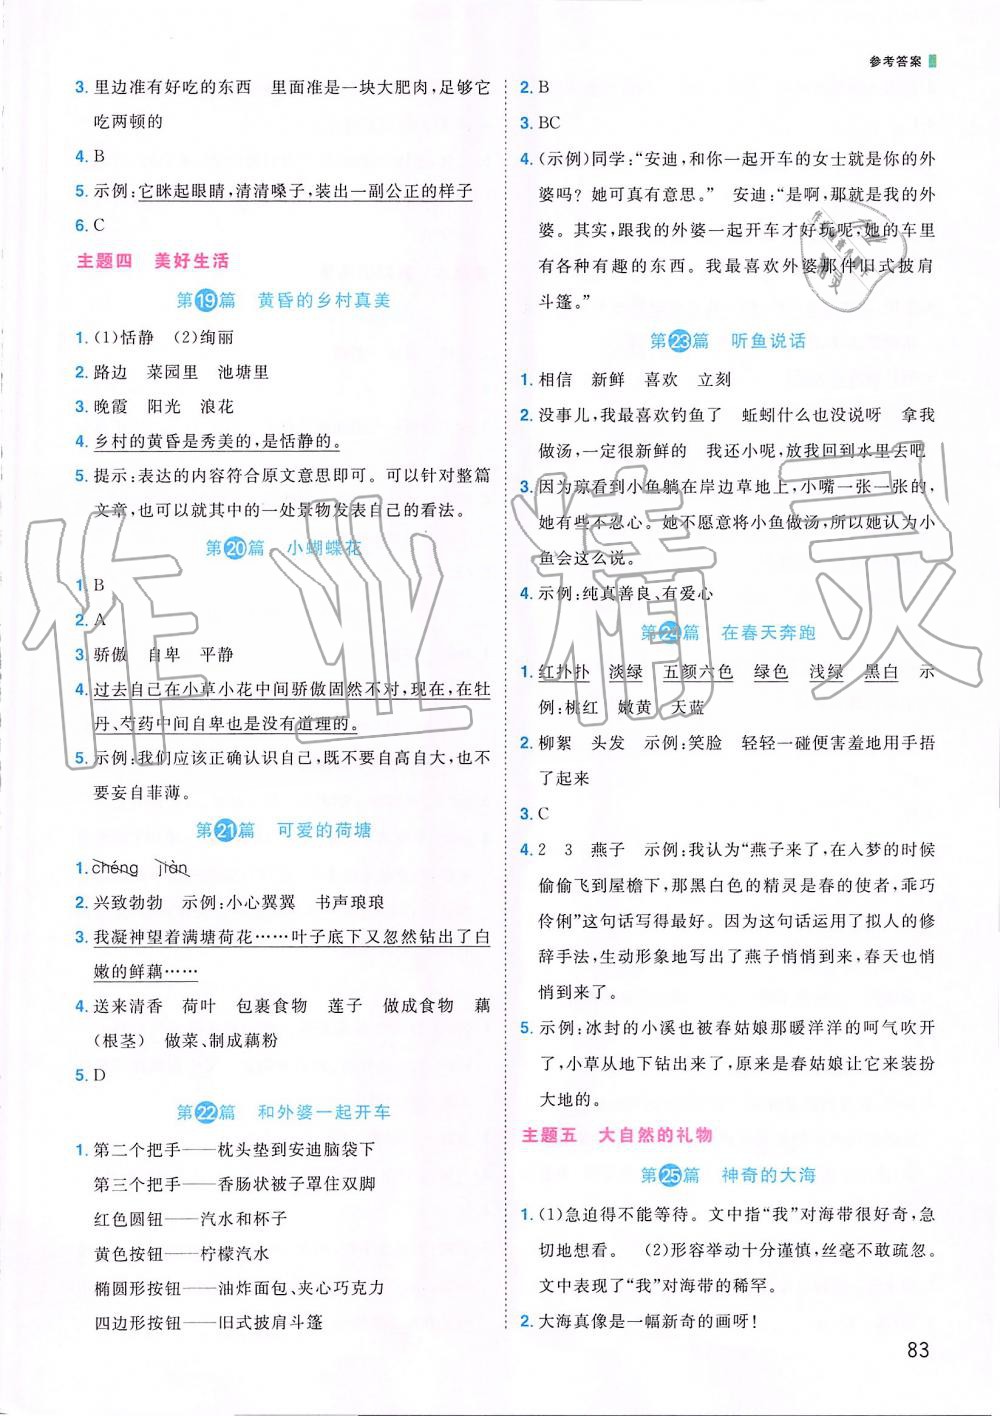 参考答案
3. 里边准有好吃的东西　里面准是一块大肥肉,足够它
吃两顿的
4. B
5. 示例:它眯起眼睛,清清嗓子,装出一副公正的样子
6. C
主题四　美好生活
第19篇　黄昏的乡村真美
1. (1)恬静　(2)绚丽
2. 路边　菜园里　池塘里
3. 晚霞　阳光　浪花
4. 乡村的黄昏是秀美的,是恬静的。
5. 提示:表达的内容符合原文意思即可。可以针对整篇
文章,也可以就其中的一处景物发表自己的看法。
第20篇　小蝴蝶花
1. B
2. A
3. 骄傲　自卑　平静
4. 过去自己在小草小花中间骄傲固然不对,现在,在牡
丹、芍药中间自卑也是没有道理的。
5. 示例:我们应该正确认识自己,既不要自高自大,也不
要妄自菲薄。
第21篇　可爱的荷塘
1. chéng　jiàn
2. 兴致勃勃　示例:小心翼翼　书声琅琅
3. 我凝神望着满塘荷花……叶子底下又忽然钻出了白
嫩的鲜藕……
4. 送来清香　荷叶　包裹食物　莲子　做成食物　藕
(根茎)　做菜、制成藕粉
5. D
第22篇　和外婆一起开车
1. 第二个把手——枕头垫到安迪脑袋下
第三个把手——香肠状被子罩住双脚
红色圆钮——汽水和杯子
黄色按钮——柠檬汽水
椭圆形按钮——油炸面包、夹心巧克力
四边形按钮——旧式披肩斗篷
2. B
3. BC
4. (示例)同学:“安迪,和你一起开车的女士就是你的外
婆吗？她可真有意思。”　安迪:“是啊,那就是我的外
婆。其实,跟我的外婆一起开车才好玩呢,她的车里
有各种有趣的东西。我最喜欢外婆那件旧式披肩
斗篷。”
第23篇　听鱼说话
1. 相信　新鲜　喜欢　立刻
2. 没事儿,我最喜欢钓鱼了　蚯蚓什么也没说呀　拿我
做汤,一定很新鲜的　我还小呢,放我回到水里去吧
3. 因为琼看到小鱼躺在岸边草地上,小嘴一张一张的,
她有些不忍心。她不愿意将小鱼做汤,所以她认为小
鱼会这么说。
4. 示例:纯真善良、有爱心
第24篇　在春天奔跑
1. 红扑扑　淡绿　五颜六色　绿色　浅绿　黑白　示
例:桃红　嫩黄　天蓝
2. 柳絮　头发　示例:笑脸　轻轻一碰便害羞地用手捂
了起来
3. C
4. 2　3　燕子　示例:我认为“燕子来了,在入梦的时候
偷偷飞到屋檐下,那黑白色的精灵是春的使者,乖巧
伶俐”这句话写得最好。因为这句话运用了拟人的修
辞手法,生动形象地写出了燕子悄悄到来,春天也悄
悄到来了。
5. 示例:冰封的小溪也被春姑娘那暖洋洋的呵气吹开
了,小草从地下钻出来了,原来是春姑娘让它来装扮
大地的。
主题五　大自然的礼物
第25篇　神奇的大海
1. (1)急迫得不能等待。文中指“我”对海带很好奇,急
切地想看。　(2)形容举动十分谨慎,丝毫不敢疏忽。
文中表现了“我”对海带的稀罕。
2. 大海真像是一幅新奇的画呀!
83
作业精灵